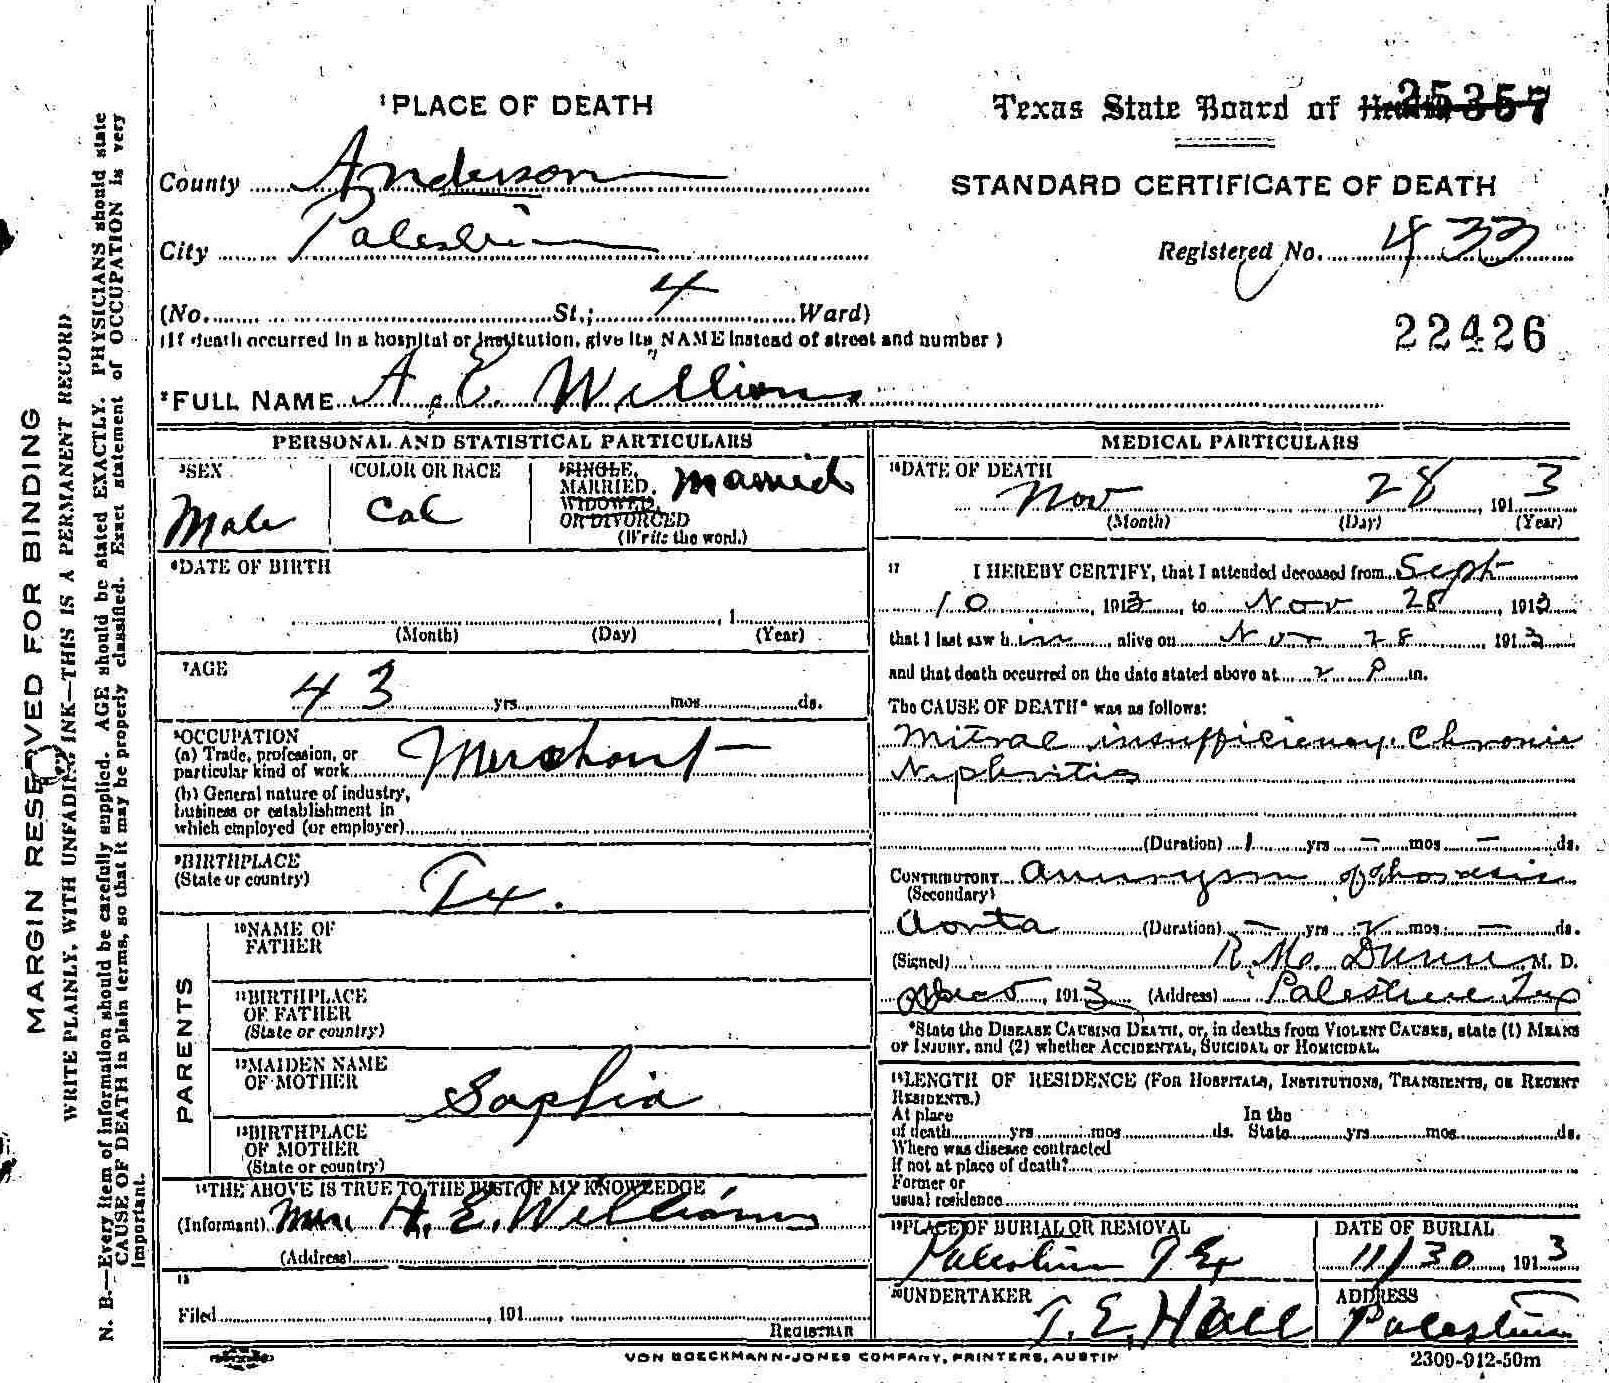 MARGIN RESERVED FOR BINDING
WRITE PLAINLY, WITH UNFADING INK—THIS IS A PERMANENT RECORD
N. B.—Every item of information should be carefully supplied. AGE should be stated EXACTLY. PHYSICIANS should state
CAUSE OF DEATH in plain terms, so that it may be properly classified. Exact statement of OCCUPATION is very
important.
1PLACE OF DEATH
Texas State Board of Health 25357
County Anderson
STANDARD CERTIFICATE OF DEATH
City Palestine
Registered No. 433
(No. St.; 4 Ward)
(If death occurred in a hospital or institution, give its NAME instead of street and number)
22426
2FULL NAME A. E. Williams
PERSONAL AND STATISTICAL PARTICULARS
3SEX
Male
4COLOR OR RACE
Col
5SINGLE,
MARRIED,
WIDOWED,
OR DIVORCED
(Write the word.)
Married
6DATE OF BIRTH
, 1
(Month) (Day) (Year)
7AGE
43 yrs. mos. ds.
8OCCUPATION
(a) Trade, profession, or
particular kind of work Merchant
(b) General nature of industry,
business or establishment in
which employed (or employer)
9BIRTHPLACE
(State or country) Tx.
PARENTS
10NAME OF
FATHER
11BIRTHPLACE
OF FATHER
(State or country)
12MAIDEN NAME
OF MOTHER Sophia
13BIRTHPLACE
OF MOTHER
(State or country)
14THE ABOVE IS TRUE TO THE BEST OF MY KNOWLEDGE
(Informant) Mrs. H. E. Williams
(Address)
15
Filed , 191
REGISTRAR
MEDICAL PARTICULARS
16DATE OF DEATH
Nov 28 , 1913
(Month) (Day) (Year)
17 I HEREBY CERTIFY, that I attended deceased from Sept
10 , 1913 , to Nov 28 , 1913
that I last saw him alive on Nov 28 , 1913
and that death occurred on the date stated above at 2 P m.
The CAUSE OF DEATH* was as follows:
Mitral insufficiency. Chronic
Nephritis
(Duration) 1 yrs – mos – ds.
CONTRIBUTORY Aneurysm of thoracic
(Secondary)
Aorta (Duration) – yrs mos – ds.
(Signed) R. M. Dunn M. D.
, 1913 (Address) Palestine Tex
*State the DISEASE CAUSING DEATH, or, in deaths from VIOLENT CAUSES, state (1) MEANS
OR INJURY, and (2) whether ACCIDENTAL, SUICIDAL or HOMICIDAL.
18LENGTH OF RESIDENCE (FOR HOSPITALS, INSTITUTIONS, TRANSIENTS, OR RECENT
RESIDENTS.)
At place In the
of death yrs mos ds. State yrs mos ds.
Where was disease contracted
If not at place of death?
Former or
usual residence
19PLACE OF BURIAL OR REMOVAL
Palestine Tex
DATE OF BURIAL
11/30 , 1913
20UNDERTAKER
T. E. Hall
ADDRESS
Palestine
VON BOECKMANN-JONES COMPANY, PRINTERS, AUSTIN
2309-912-50m